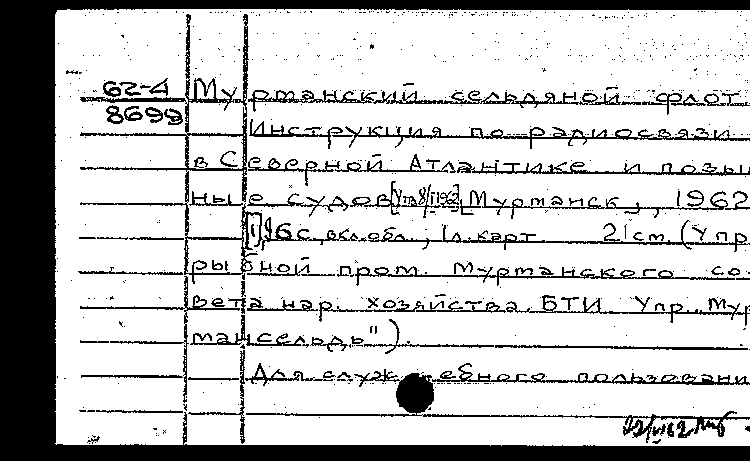 62-4
8699
Мурманский сельдяной флот
Инструкция по радиосвязи
в Северной Атлантике и позыв
ные судов [Утв. 8/I 1962] Мурманск, , 1962
[1], 16 с., вкл. обл., 1 л. карт. 21 см. (Упр.
рыбной пром. Мурманского со-
вета нар. хозяйства. БТИ Упр. "Мур
мансельдь").
Для служебного пользовани